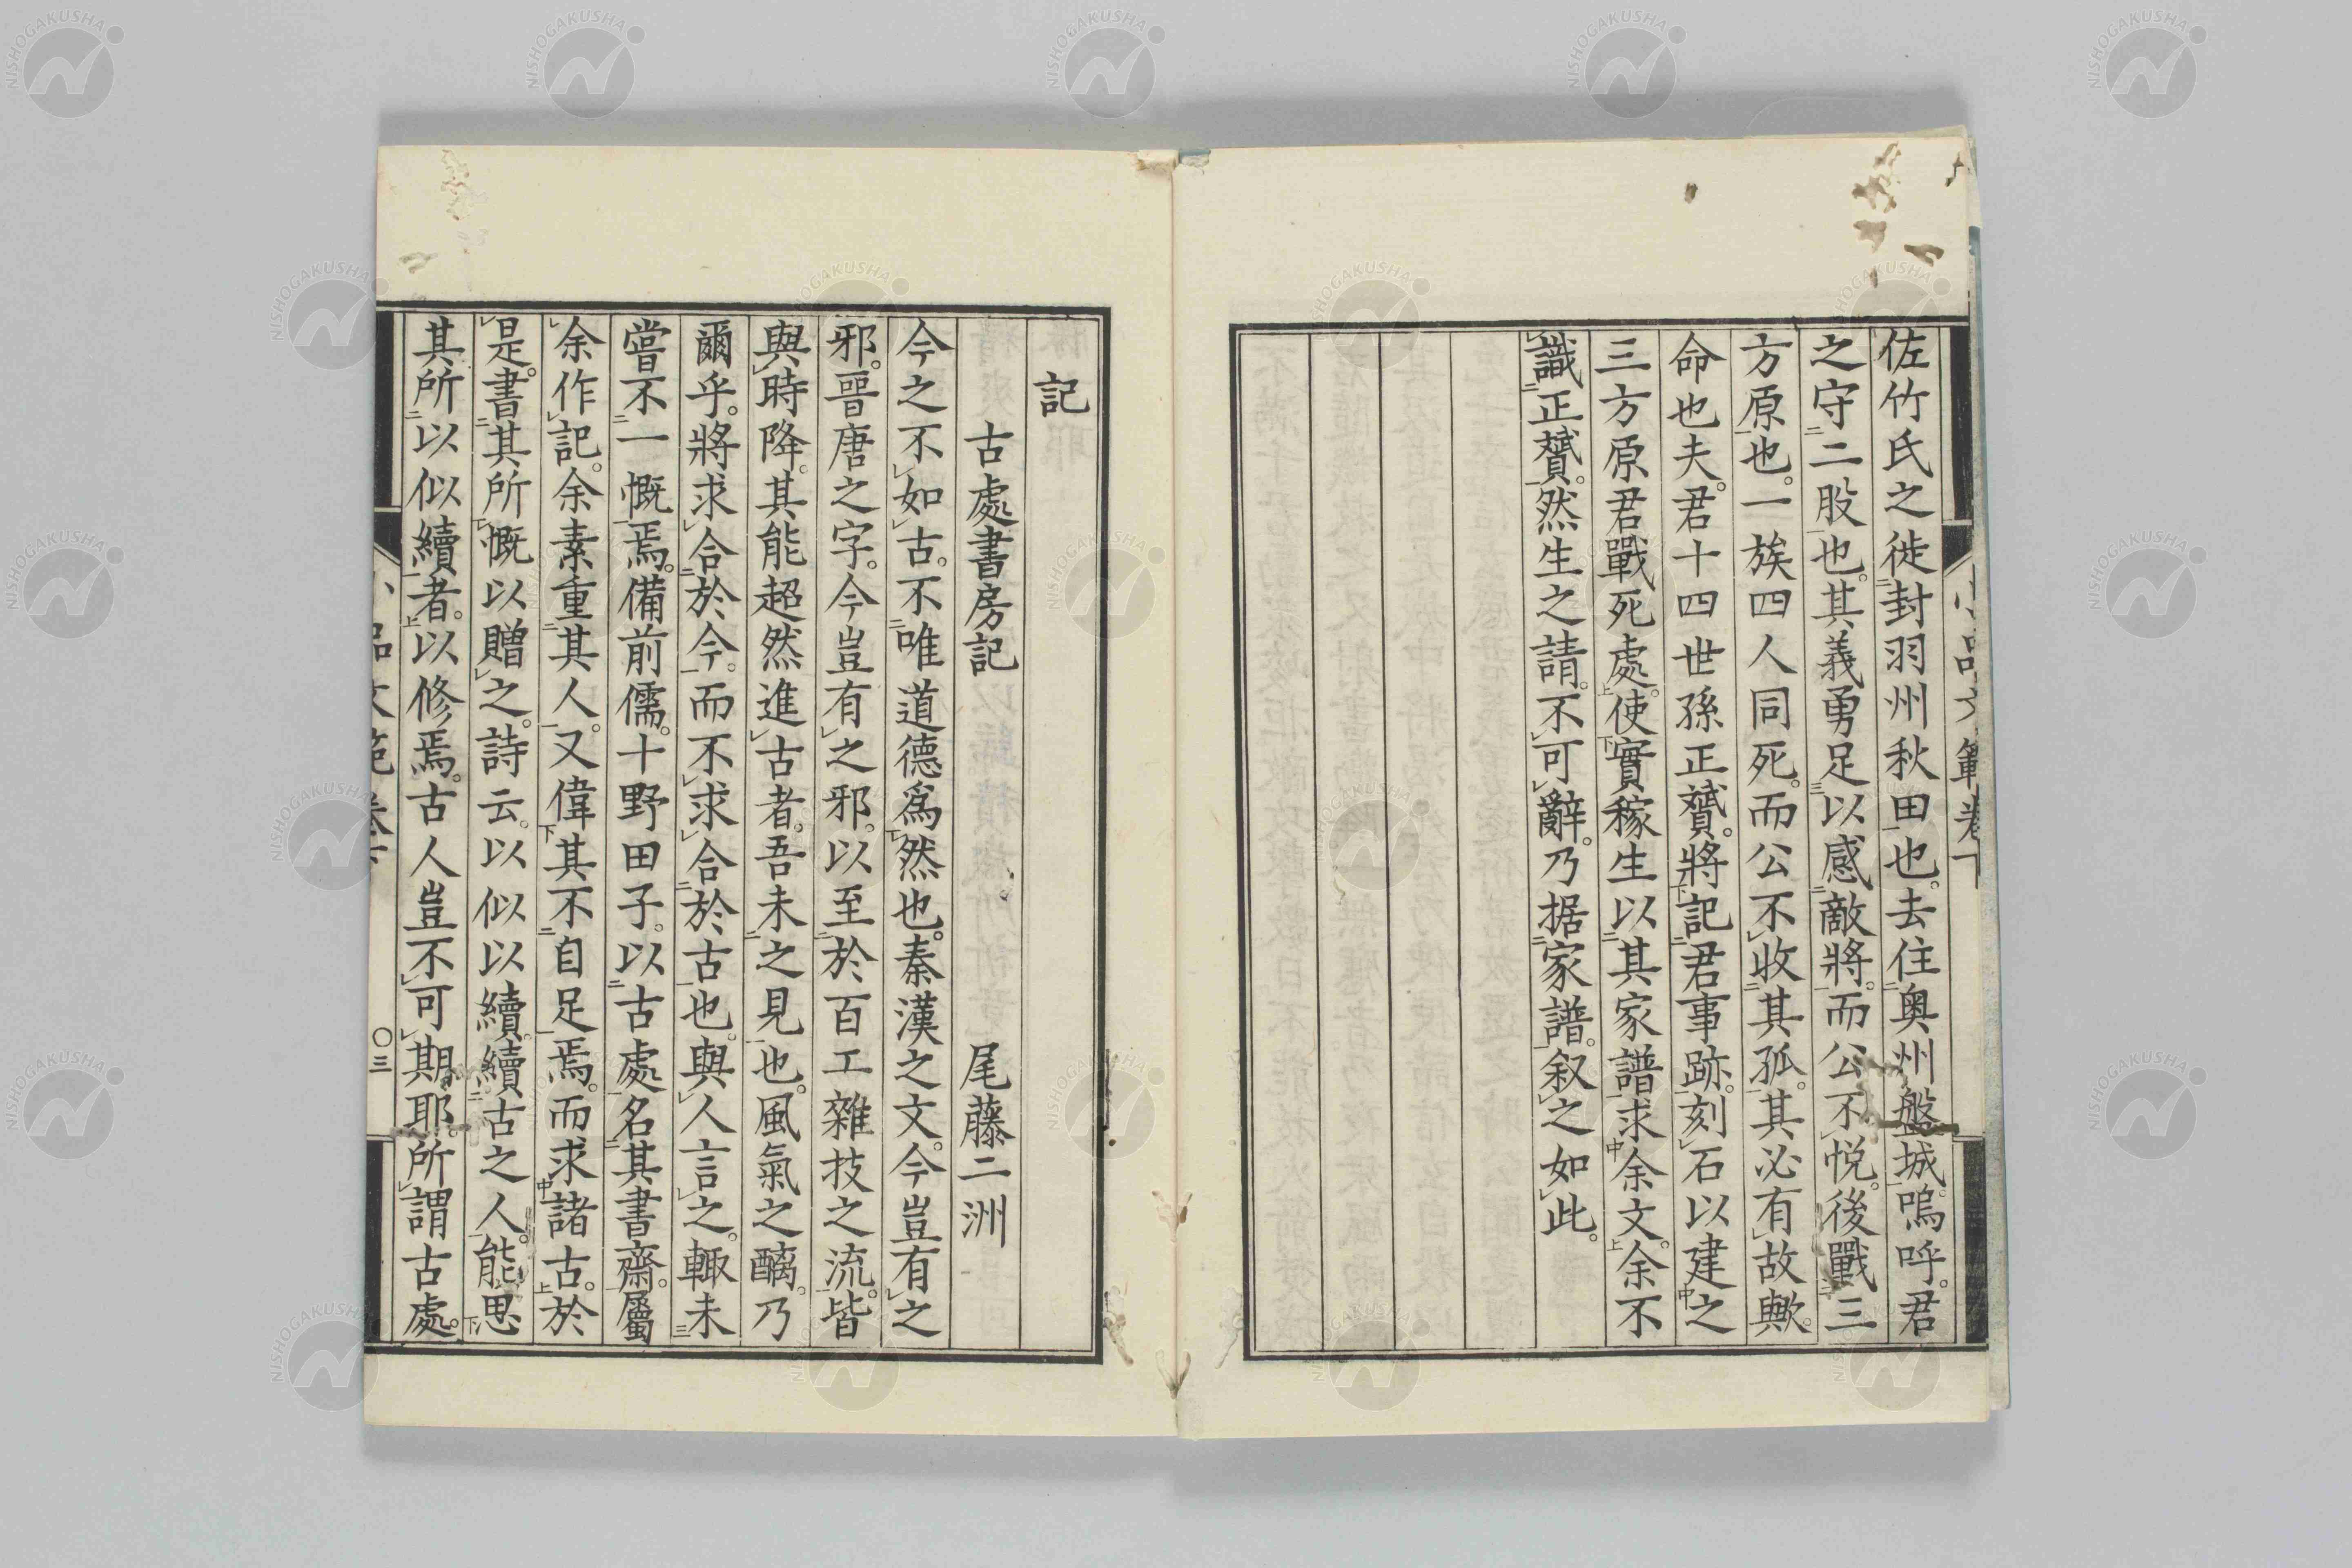 佐竹氏之徙封羽州秋田也。去住奥州盤城。嗚呼。君
之守二股也。其義勇足以感敵將。而公不悅。後戰三
方原也。一族四人同死。而公不收其孤。其必有故歟。
命也夫。君十四世孫正贇。將記君事跡。刻石以建之
三方原君戰死處。使實稼生以其家譜求余文。余不
識正贇。然生之請。不可辭。乃据家譜。叙之如此。
記
古處書房記 尾藤二洲
今之不如古。不唯道德爲然也。秦漢之文。今豈有之
邪。晉唐之字。今豈有之邪。以至於百工雜技之流。皆
與時降。其能超然進古者。吾未之見也。風氣之醨。乃
爾乎。將求合於今。而不求合於古也。與人言之。輙未
嘗不一慨焉。備前儒。十野田子。以古處名其書齋。屬
余作記。余素重其人。又偉其不自足焉。而求諸古。於
是。書其所慨以贈之。詩云。以似以續。續古之人。能思
其所以似續者。以修焉。古人豈不可期耶。所謂古處。
〇三
NISHOGAKUSHA